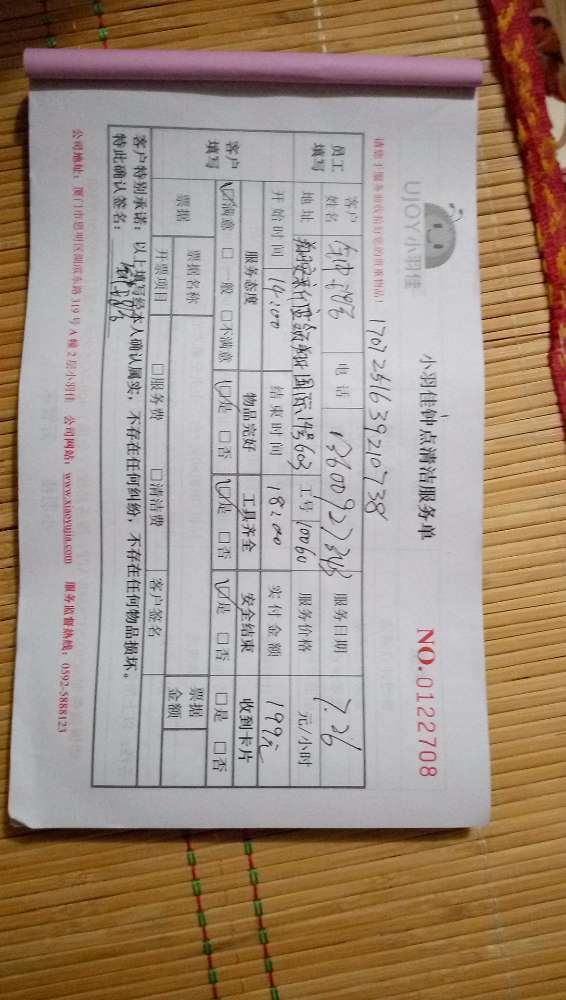 UJOY小羽佳
小羽佳钟点清洁服务单
NO.0122708
请您于服务前收拾好您的贵重物品!
1707251639210738
员工填写
客户姓名
电话 13600927348
服务日期 7.26
地址 国际 603
工号 10060
服务价格 元/小时
开始时间 14:00
结束时间 18:00
实付金额 199元
客户填写
服务态度 物品完好 工具齐全 安全结束 收到卡片
☑满意 □一般 □不满意 ☑是 □否 ☑是 □否 ☑是 □否 □是 □否
票据
票据名称
票据金额
开票项目 □服务费 □清洁费
客户签名
客户特别承诺:以上填写经本人确认属实,不存在任何纠纷,不存在任何物品损坏。
特此确认签名:
公司地址:厦门市思明区湖滨东路319号A幢2层小羽佳 公司网站:www.xiaoyujia.com 服务监督热线:0592-5888123